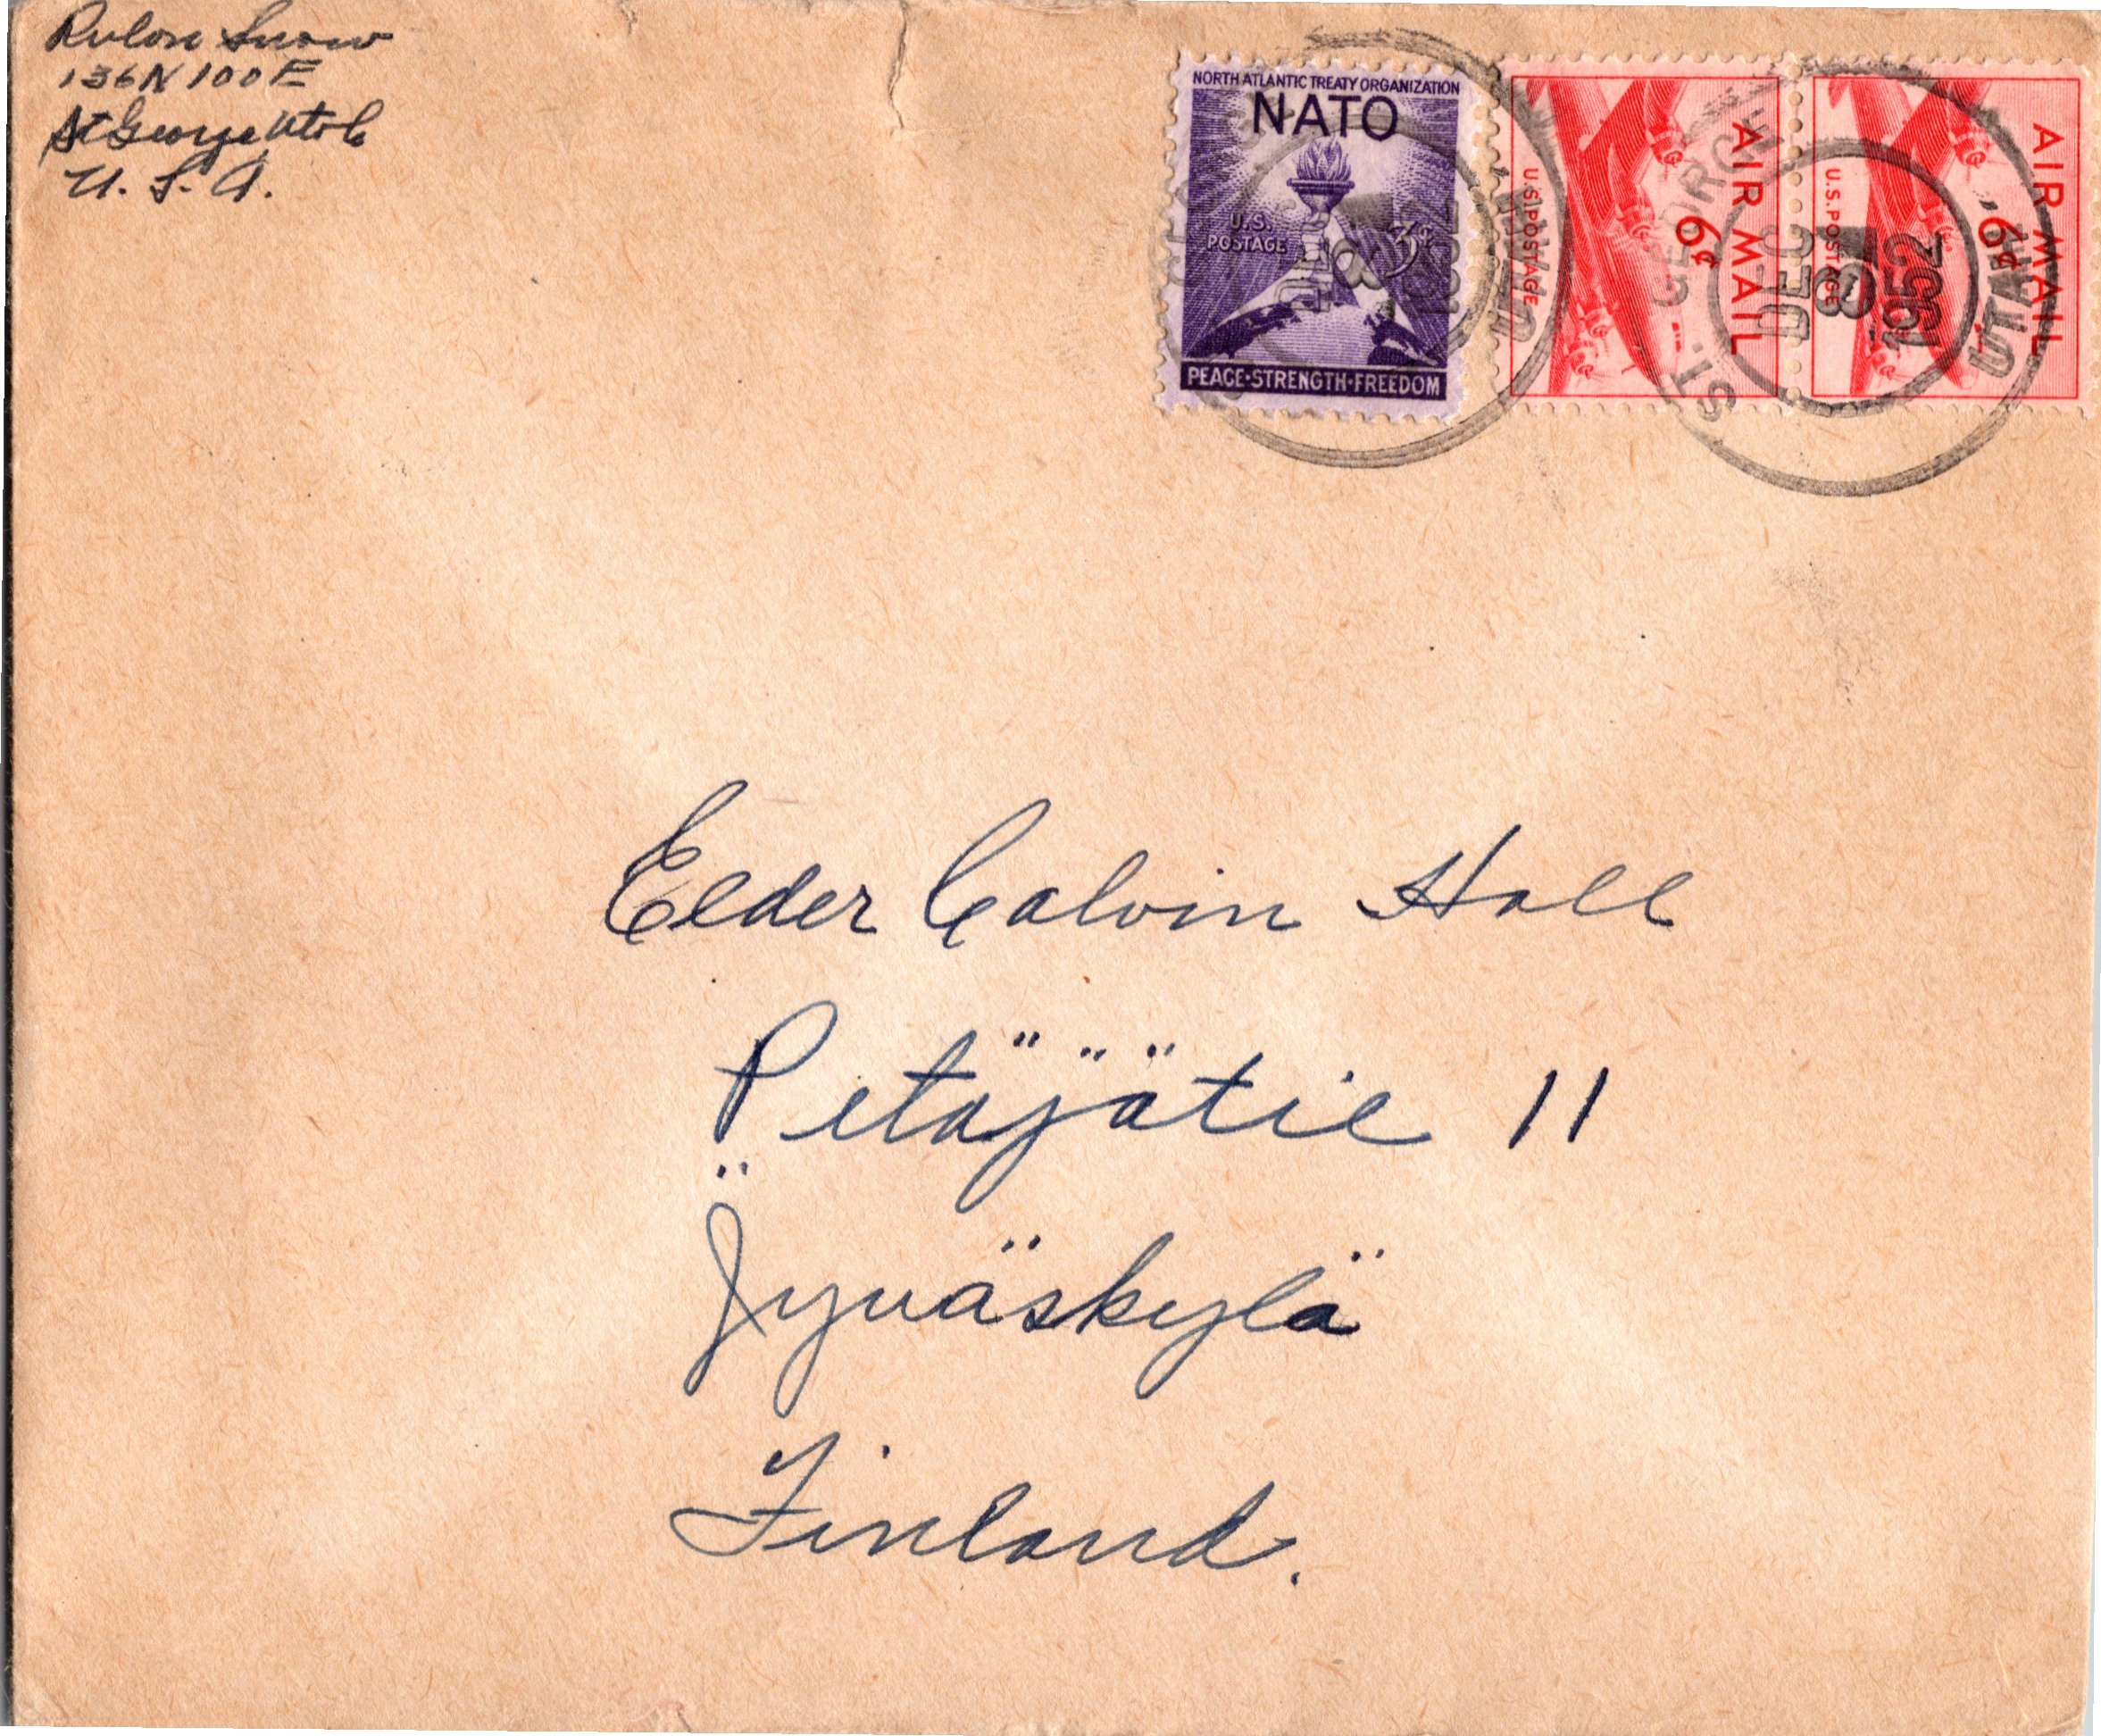 Rulon Snow
136 N 100 E
St George, Utah
U. S. A.
NORTH ATLANTIC TREATY ORGANIZATION
NATO
U.S.
POSTAGE
3¢
PEACE·STRENGTH·FREEDOM
AIR MAIL
6¢
U.S. POSTAGE
AIR MAIL
6¢
U.S. POSTAGE
UTAH
ST. GEORGE, UTAH
DEC
8
1952
Elder Calvin Hall
Petäjätie 11
Jyväskylä
Finland.